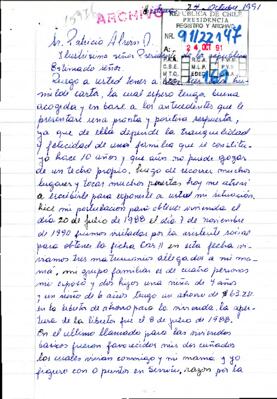 ARCHIVO
REPUBLICA DE CHILE
PRESIDENCIA
REGISTRO Y ARCHIVO
NR. 91/22147
24 OCT 91
Octubre 1991
Sr. Patricio Aylwin A.
Ilustrísimo señor Presidente de la república
Estimado señor
Ruego a usted tener a bien
mi de carta, la cual espero tenga buena
acogida y en base a los antecedentes que le
presentaré una pronta y positiva respuesta,
ya que de ella depende la tranquilidad
y felicidad de una familia que se constitu-
yó hace 10 años y que aún no puede gozar
de un techo propio, luego de recorrer muchos
lugares y tocar muchas puertas hoy me atreví
a escribirle para exponerle a usted mi situación,
hice mi postulación para obtener vivienda el
día 20 de julio de 1988 el día 7 de noviembre
de 1990 fuimos visitados por la asistente social
para obtener la ficha Cas II en esta fecha vi-
víamos tres matrimonios allegados a mi ma-
má, mi grupo familiar es de cuatro personas
mi esposo y dos hijos una niña de 9 años
y un niño de 6 años tengo un ahorro de $63.211
en la libreta de ahorro para la vivienda, la aper-
tura de la libreta fue el 8 de julio de 1988.
En el último llamado para las viviendas
básicas fueron favorecidos mis dos cuñados
los cuales vivían conmigo y mi mamá y yo
figuro con 0 puntos en Serviu, razón por la